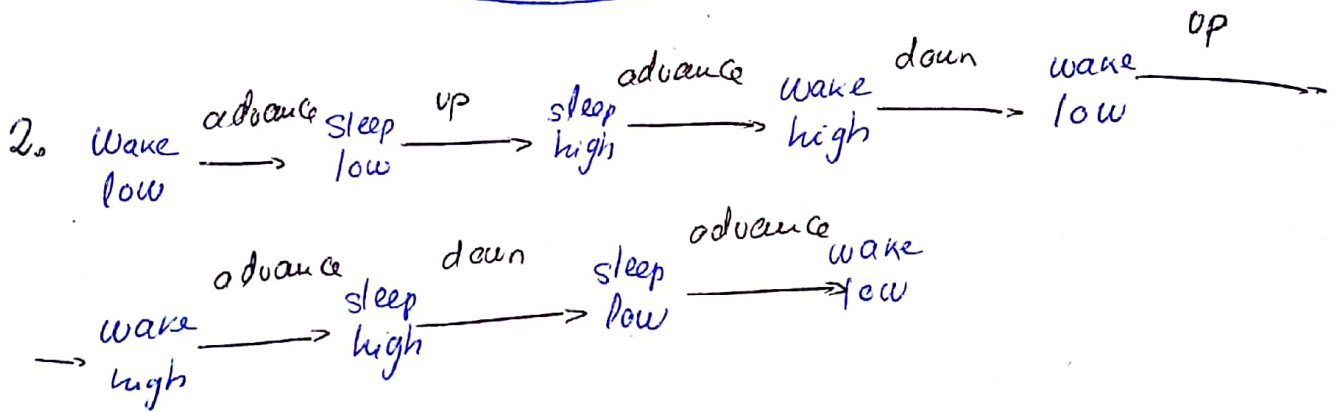 2. Wake low advance → Sleep low up → sleep high advance → wake high down → wake low up →
→ wake high advance → sleep high down → sleep low advance → wake low